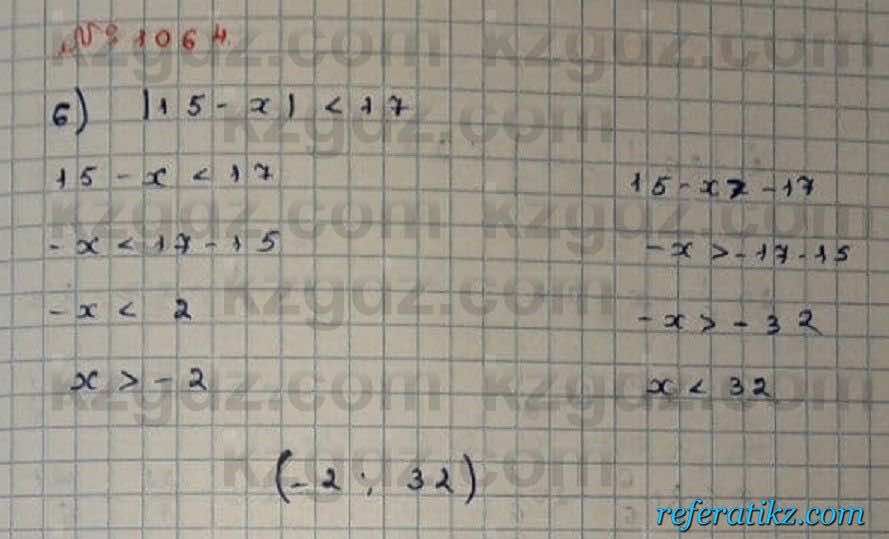 № 1064.
б) |15 - x| < 17
15 - x < 17
15 - x > -17
-x < 17 - 15
-x > -17 - 15
-x < 2
-x > -32
x > -2
x < 32
(-2; 32)
kzgdz.com
referatikz.com